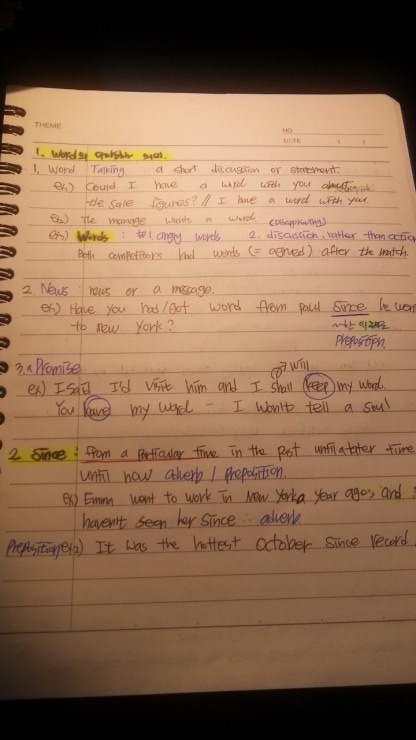 THEME
NO.
DATE
1. Word의
1. Word. Talking : a short discussion or statement.
ex) Could I have a word with you about
the sale figures? // I have a word with you
ex) the manage wants a word. (disapproving)
ex) Words : #1 angry words 2. discussion, rather than action
Both competitors had words (= agrued) after the match.
2. News : news or a message.
ex) Have you had/got word from paul since he went
to new York?
~한 이래로
Preposition.
3. a Promise
will
ex) I said I'd visit him and I shall keep my word.
You have my word - I won't tell a soul
2. Since : from a particular time in the past until a later time
until now adverb / Preposition.
ex) Emma went to work in New York a year ago, and
haven't seen her since ∴ adverb
Preposition ex2) It was the hottest october since record